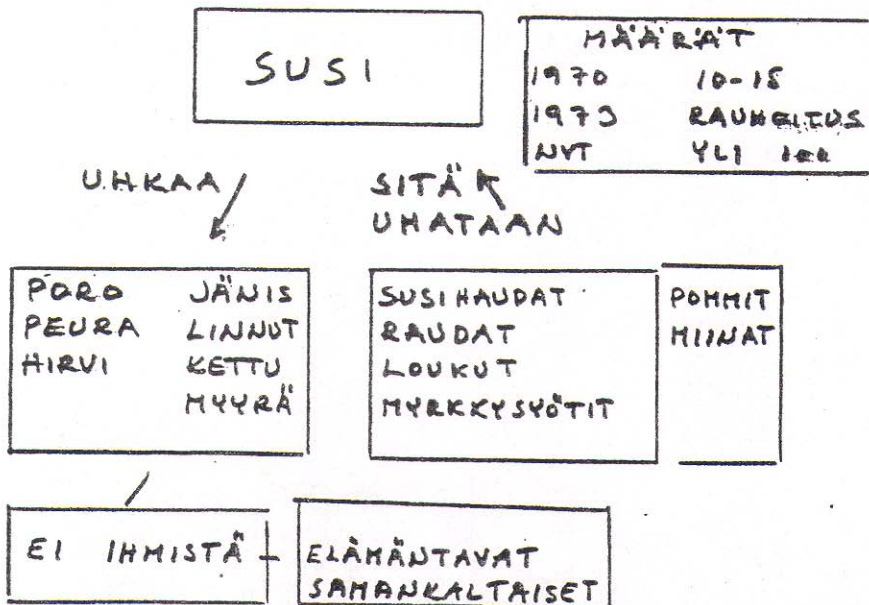 SUSI
MÄÄRÄT
1970 10-15
1973 RAUHOITUS
NYT YLI 100
UHKAA
SITÄ
UHATAAN
PORO JÄNIS
PEURA LINNUT
HIRVI KETTU
MYYRÄ
SUSIHAUDAT
RAUDAT
LOUKUT
MYRKKYSYÖTIT
POMMIT
MIINAT
EI IHMISTÄ
ELÄMÄNTAVAT
SAMANKALTAISET